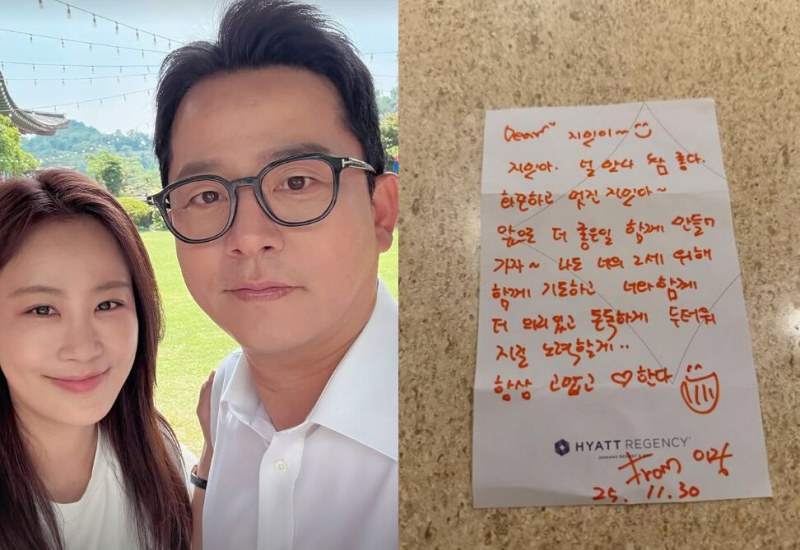 Dear~ 지민이~
지민아. 널 만나 참 좋다.
멋진 지민아~
앞으로 더 좋은일 함께 만들어
가자~ 나도 너의 2세 위해
함께 기도하고 너와함께
더 의리있고 돈독하게 두터워
지길 노력할게..
항상 고맙고 ♡한다.
HYATT REGENCY
DANANG RESORT & SPA
from
25. 11.30